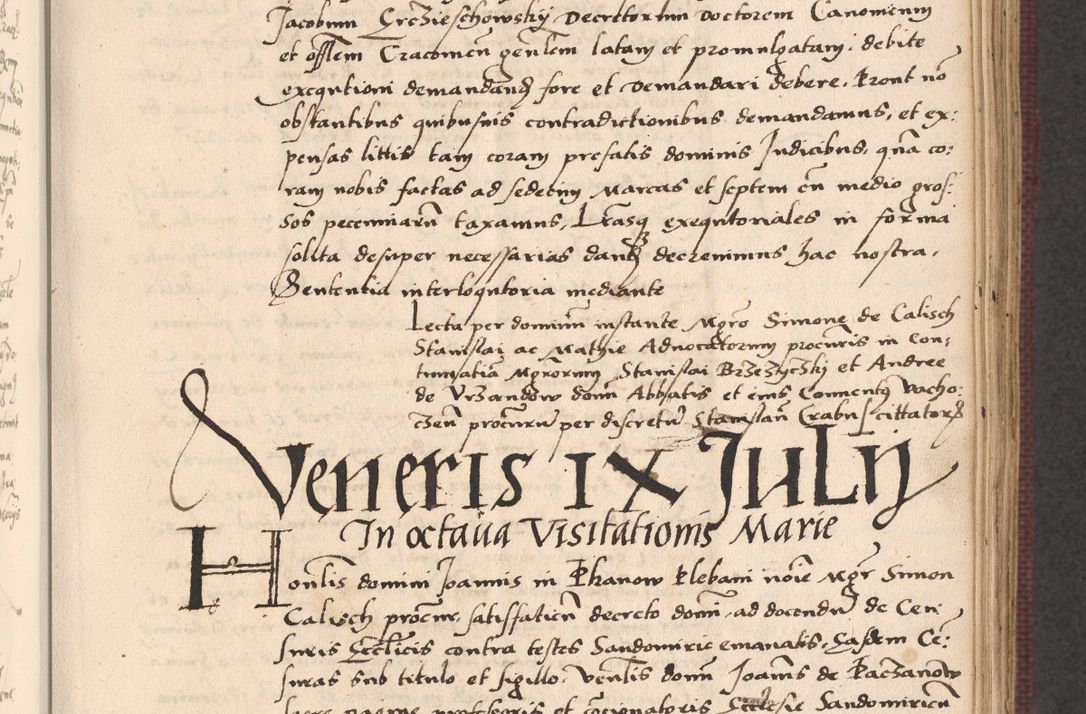 Jacobum Erczieschowsky Decretorum Doctorem Canonicum
et offlem Cracouien gnlem latam et promulgatam, debite
exeqntioni demandand fore et demandari debere, Pront no
obstantibus quibusuis contradictionibus demandamus, et ex:
pensas littis tam coram prefatis dominis Judicibus, qua co:
ram nobis factas ad sedecim Marcas et septem cu medio gros:
sos pecuniaru taxamus, Lrasq exeqntoriales in forma
sollta desuper necessarias dand decreuimus hac nostra,
Sententia interloqntoria mediante
Lecta per dominu instante Mgro Simone de Calisch
Stanislai ac Mathie Aduocatorum procuris in Con:
tumatia Mgrorum Stanislai Brzezyczky et Andree
de Vrzandow domi Abbatis et eius Conuentq Wacho:
czen procuru per discretu Stanislau Crabu scittator
Veneris IX Julij
In octaua Visitationis Marie
Honlis domini Joannis in Phanow Plebani noie Mgr Simon
Calisch procur, satisffatien decreto domi, ad docendu de Cen
suris Ecclicis contra testes Sandomirie emanatis, Easdem Ce:
suras sub titulo et sigillo, Venlis domi Joanis de Paczanow
sacre pagine professoris et concionatoris Ecclesie Sandomirien